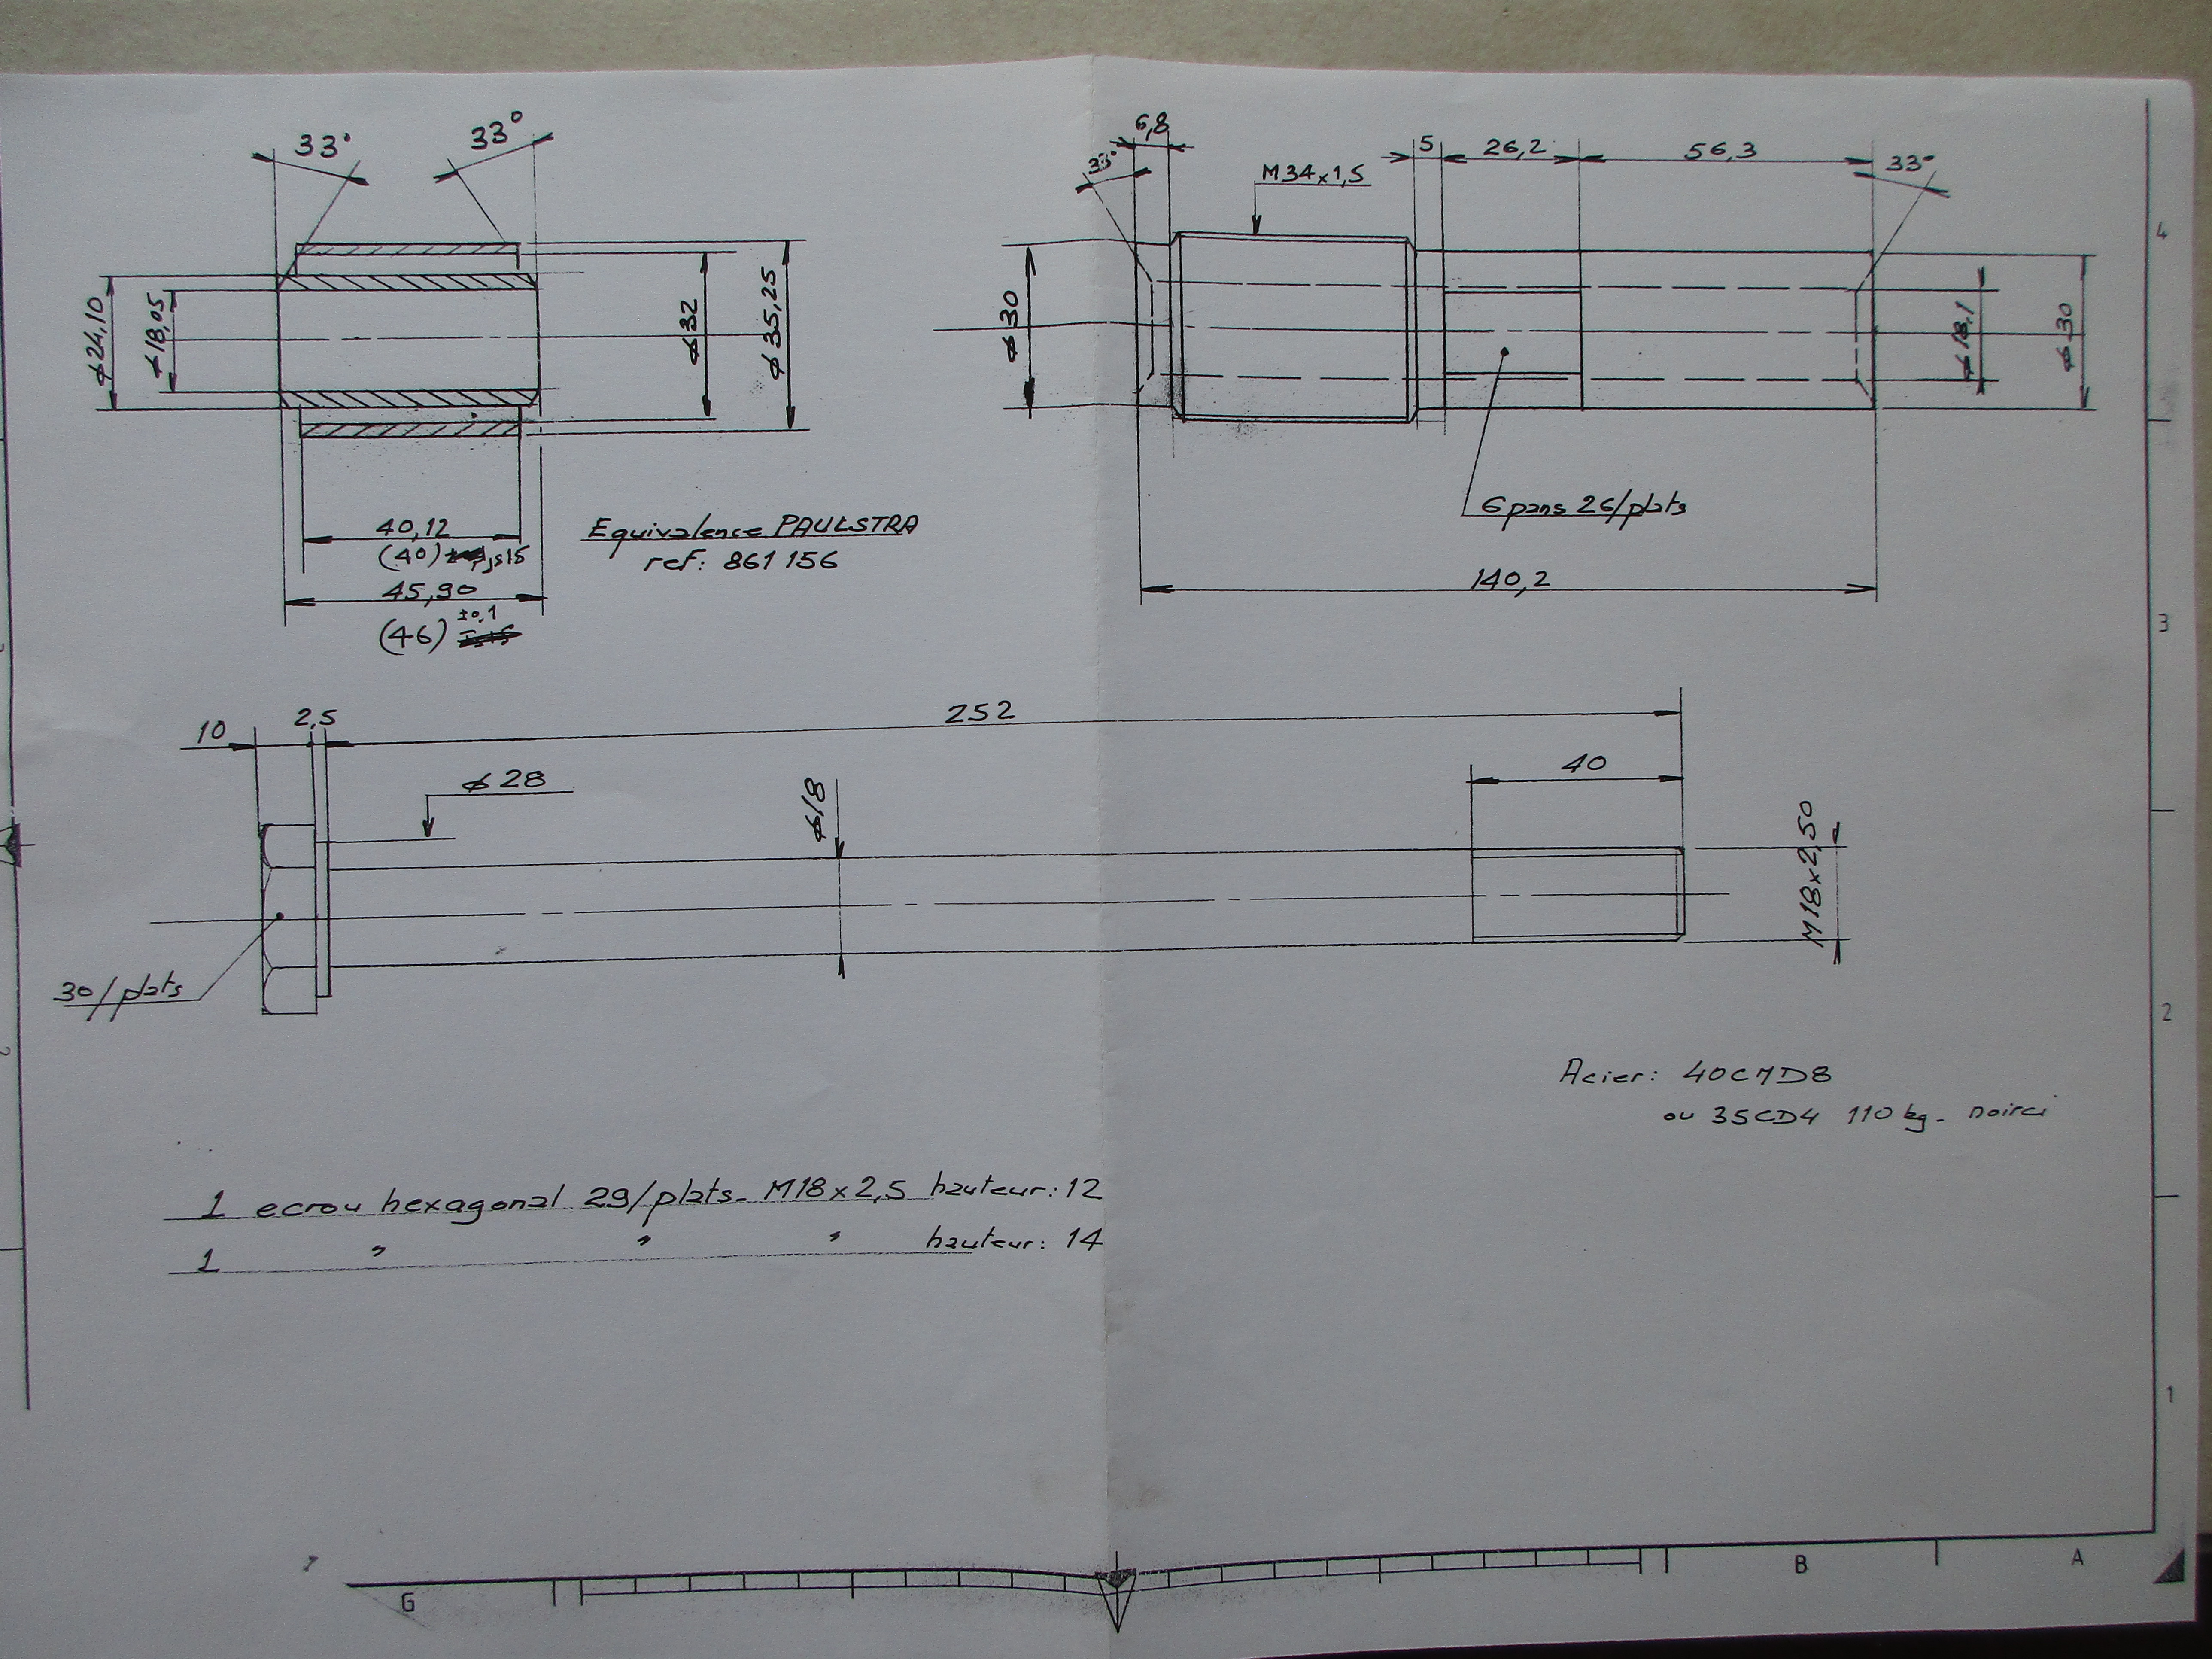 33°
33°
ϕ24,10
ϕ18,05
ϕ32
ϕ35,25
40,12
(40) js15
45,90
±0,1
(46)
Equivalence PAULSTRA
ref: 861 156
6,8
33°
M34x1,5
5
26,2
56,3
33°
ϕ30
ϕ18,1
ϕ30
6 pans 26/plats
140,2
4
3
10
2,5
252
ϕ28
ϕ18
40
M18x2,50
30/plats
2
2
Acier: 40CMD8
ou 35CD4 110 kg - noirci
1 ecrou hexagonal 29/plats - M18x2,5 hauteur: 12
1 " " " hauteur: 14
1
G
B
A